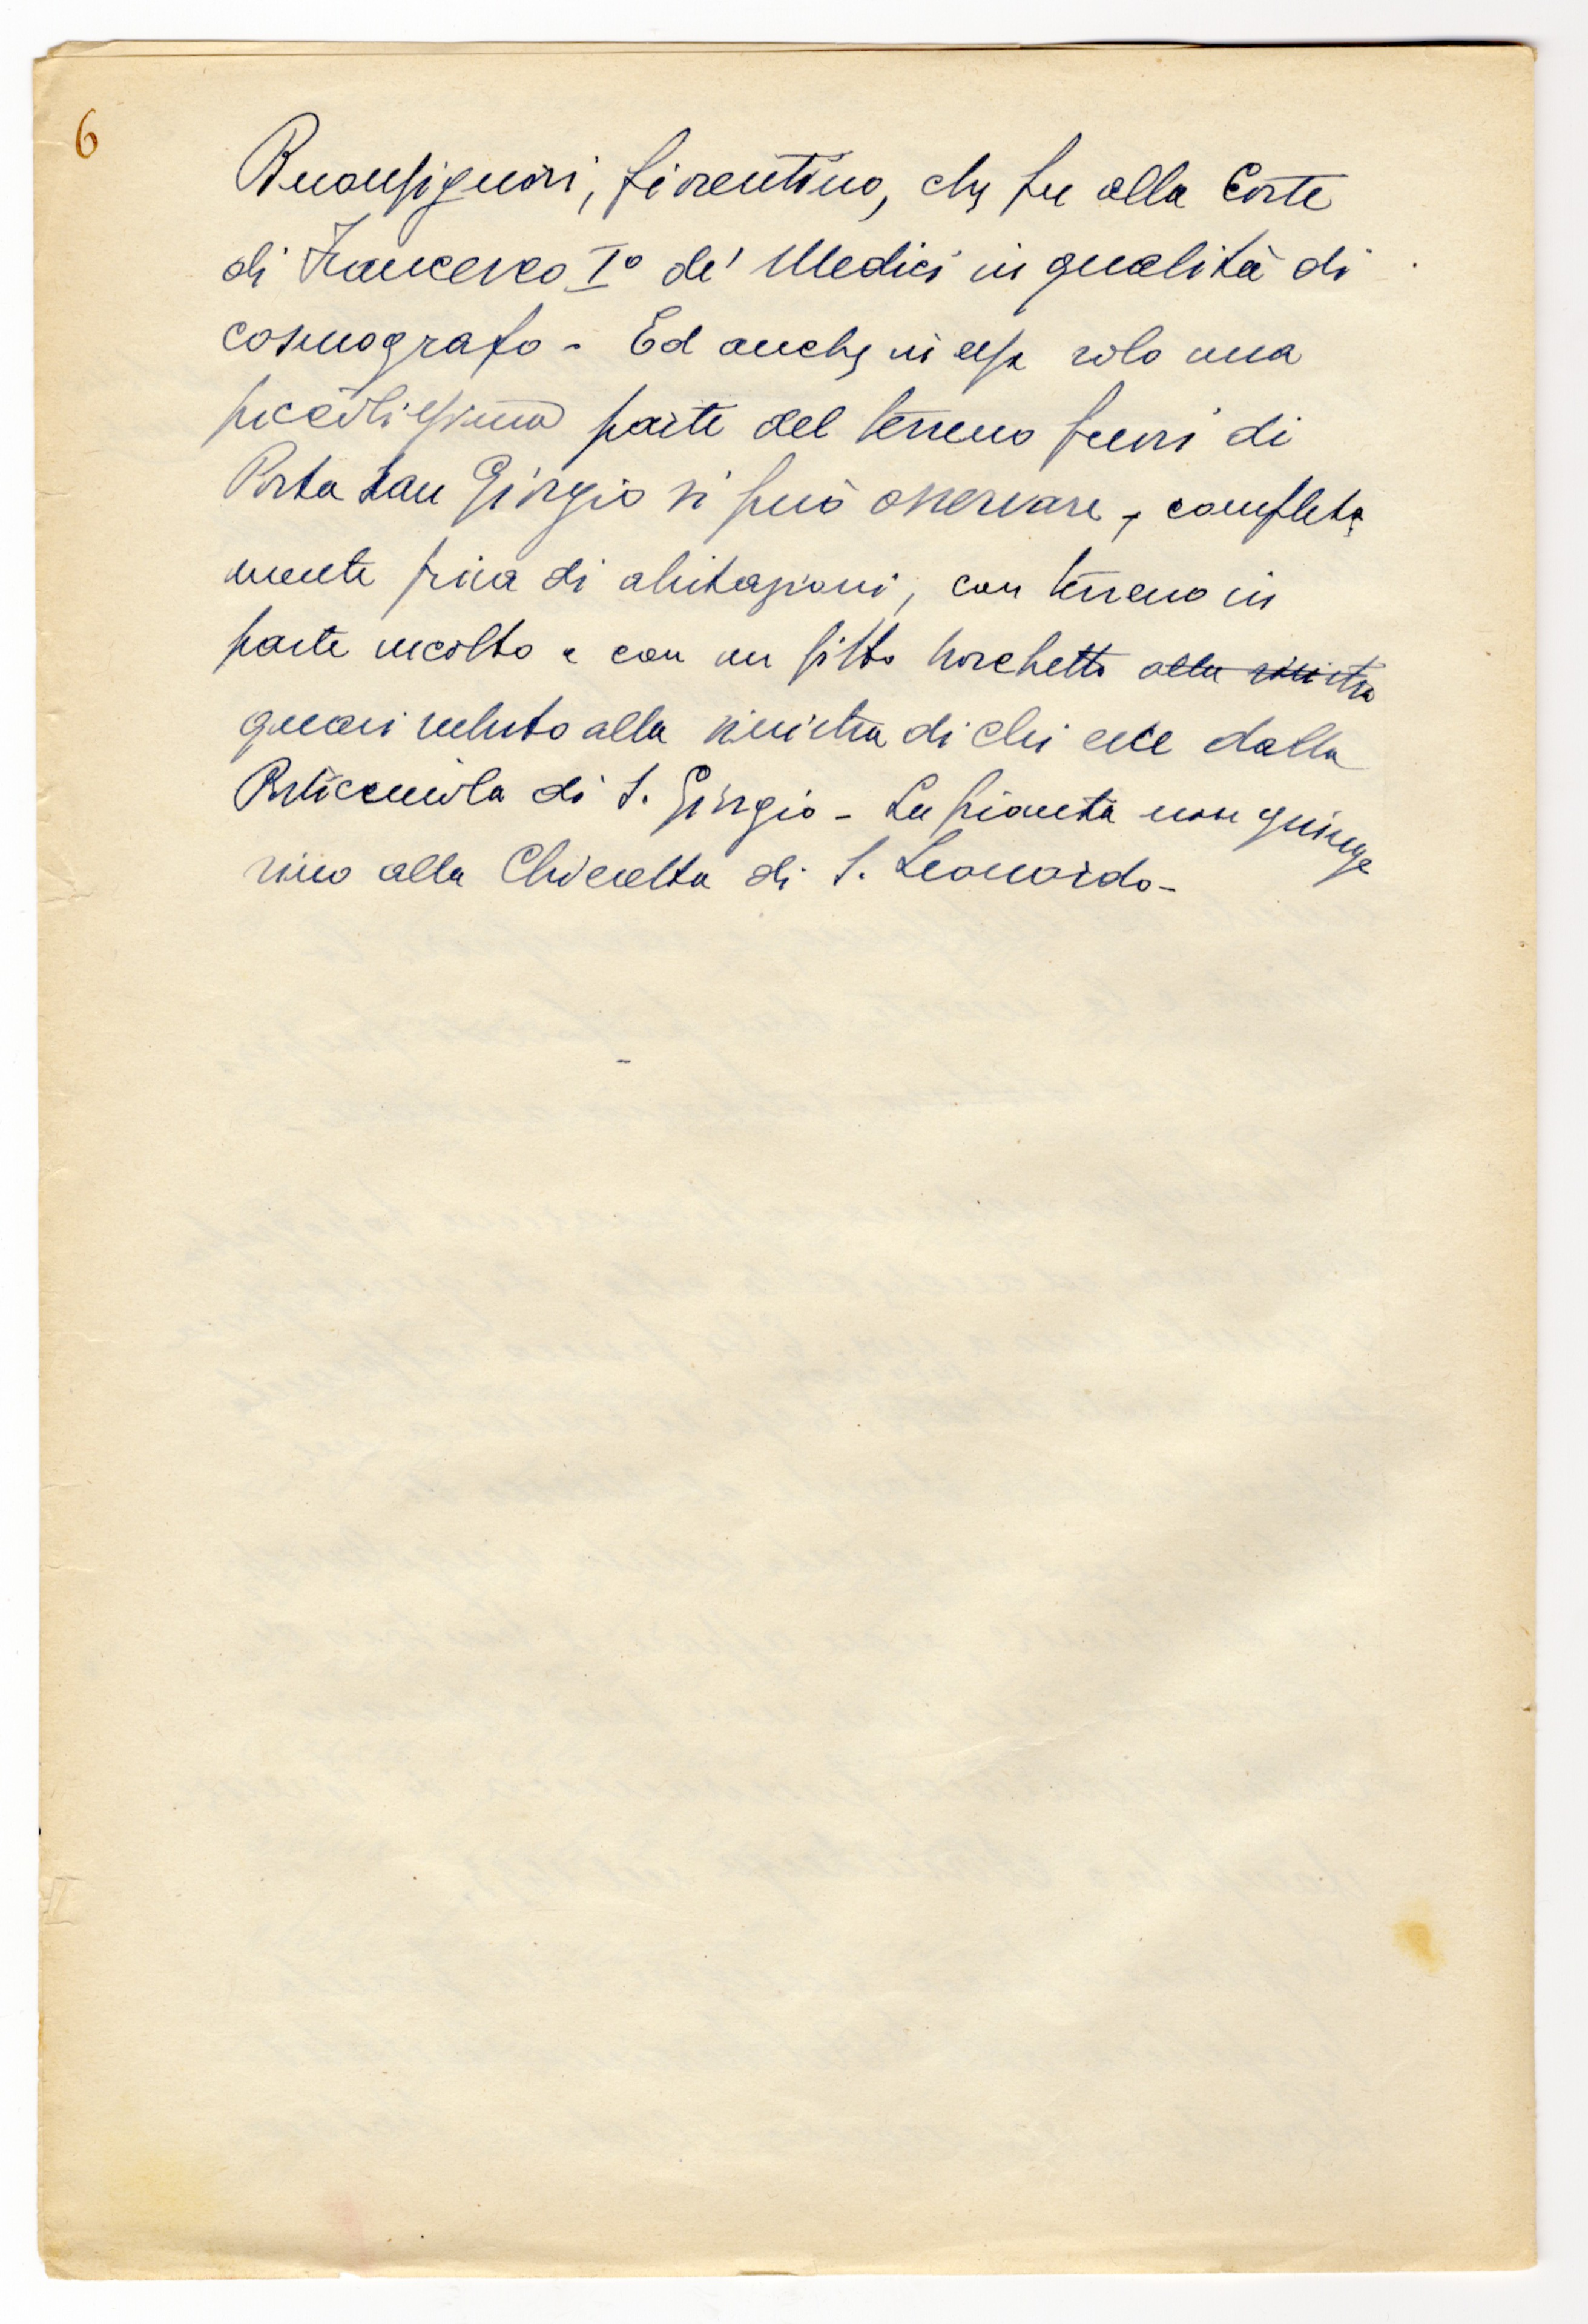 6
Buonsignori, fiorentino, che fu alla Corte
di Francesco I° de' Medici in qualità di
cosmografo - Ed anche in essa solo una
piccolissima parte del terreno fuori di
Porta San Giorgio si può osservare, completa
mente priva di abitazioni, con terreno in
parte incolto e con un fitto boschetto alla sinistra
quasi subito alla sinistra di chi esce dalla
Porticciuola di S. Giorgio - La pianta non giunge
sino alla Chiesetta di S. Leonardo -